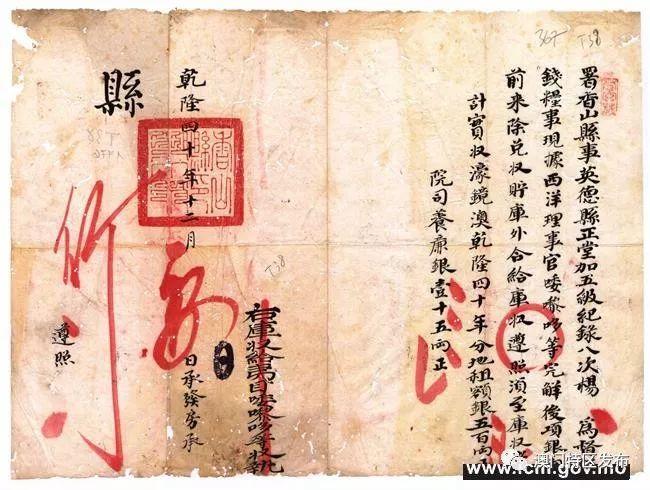 署香山縣事英德縣正堂加五級紀錄八次楊 為督
錢糧事現據西洋理事官唛嚟哆等完解後項銀
前來除兌收貯庫外合給庫收遵照須至庫收
計實收濠鏡澳乾隆四十年分地租額銀五百兩
院司養廉銀壹十五兩正
右庫收給夷目唛嚟哆等收執
乾隆四十年十二月
日承發房承
縣
遵照
367
T38
T38
澳门特区发布
www.icm.gov.mo